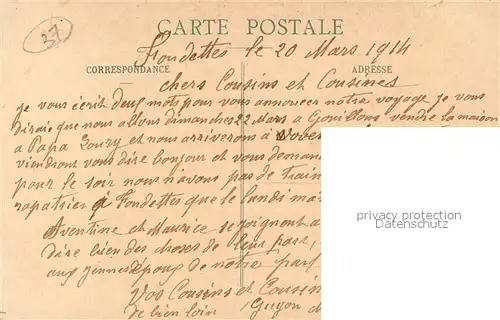 27
CARTE POSTALE
Fondettes le 20 Mars 1914
CORRESPONDANCE
ADRESSE
chers Cousins et Cousines
je vous écrit deux mots pour vous annoncer notre voyage je vous
dirai que nous allons dimanche 22 Mars a vendre la maison
a Papa et nous arriverons à
viendrons vous dire bonjour et vous deman
pour le soir nous n'avons pas de train
rapatrier à Fondettes que le lundi ma
Aventine et Maurice se joignent a
dire bien des choses de leur part,
aux jeunes époux de notre part
privacy protection
Datenschutz
Vos Cousins et Cousin
de bien loin Guyon